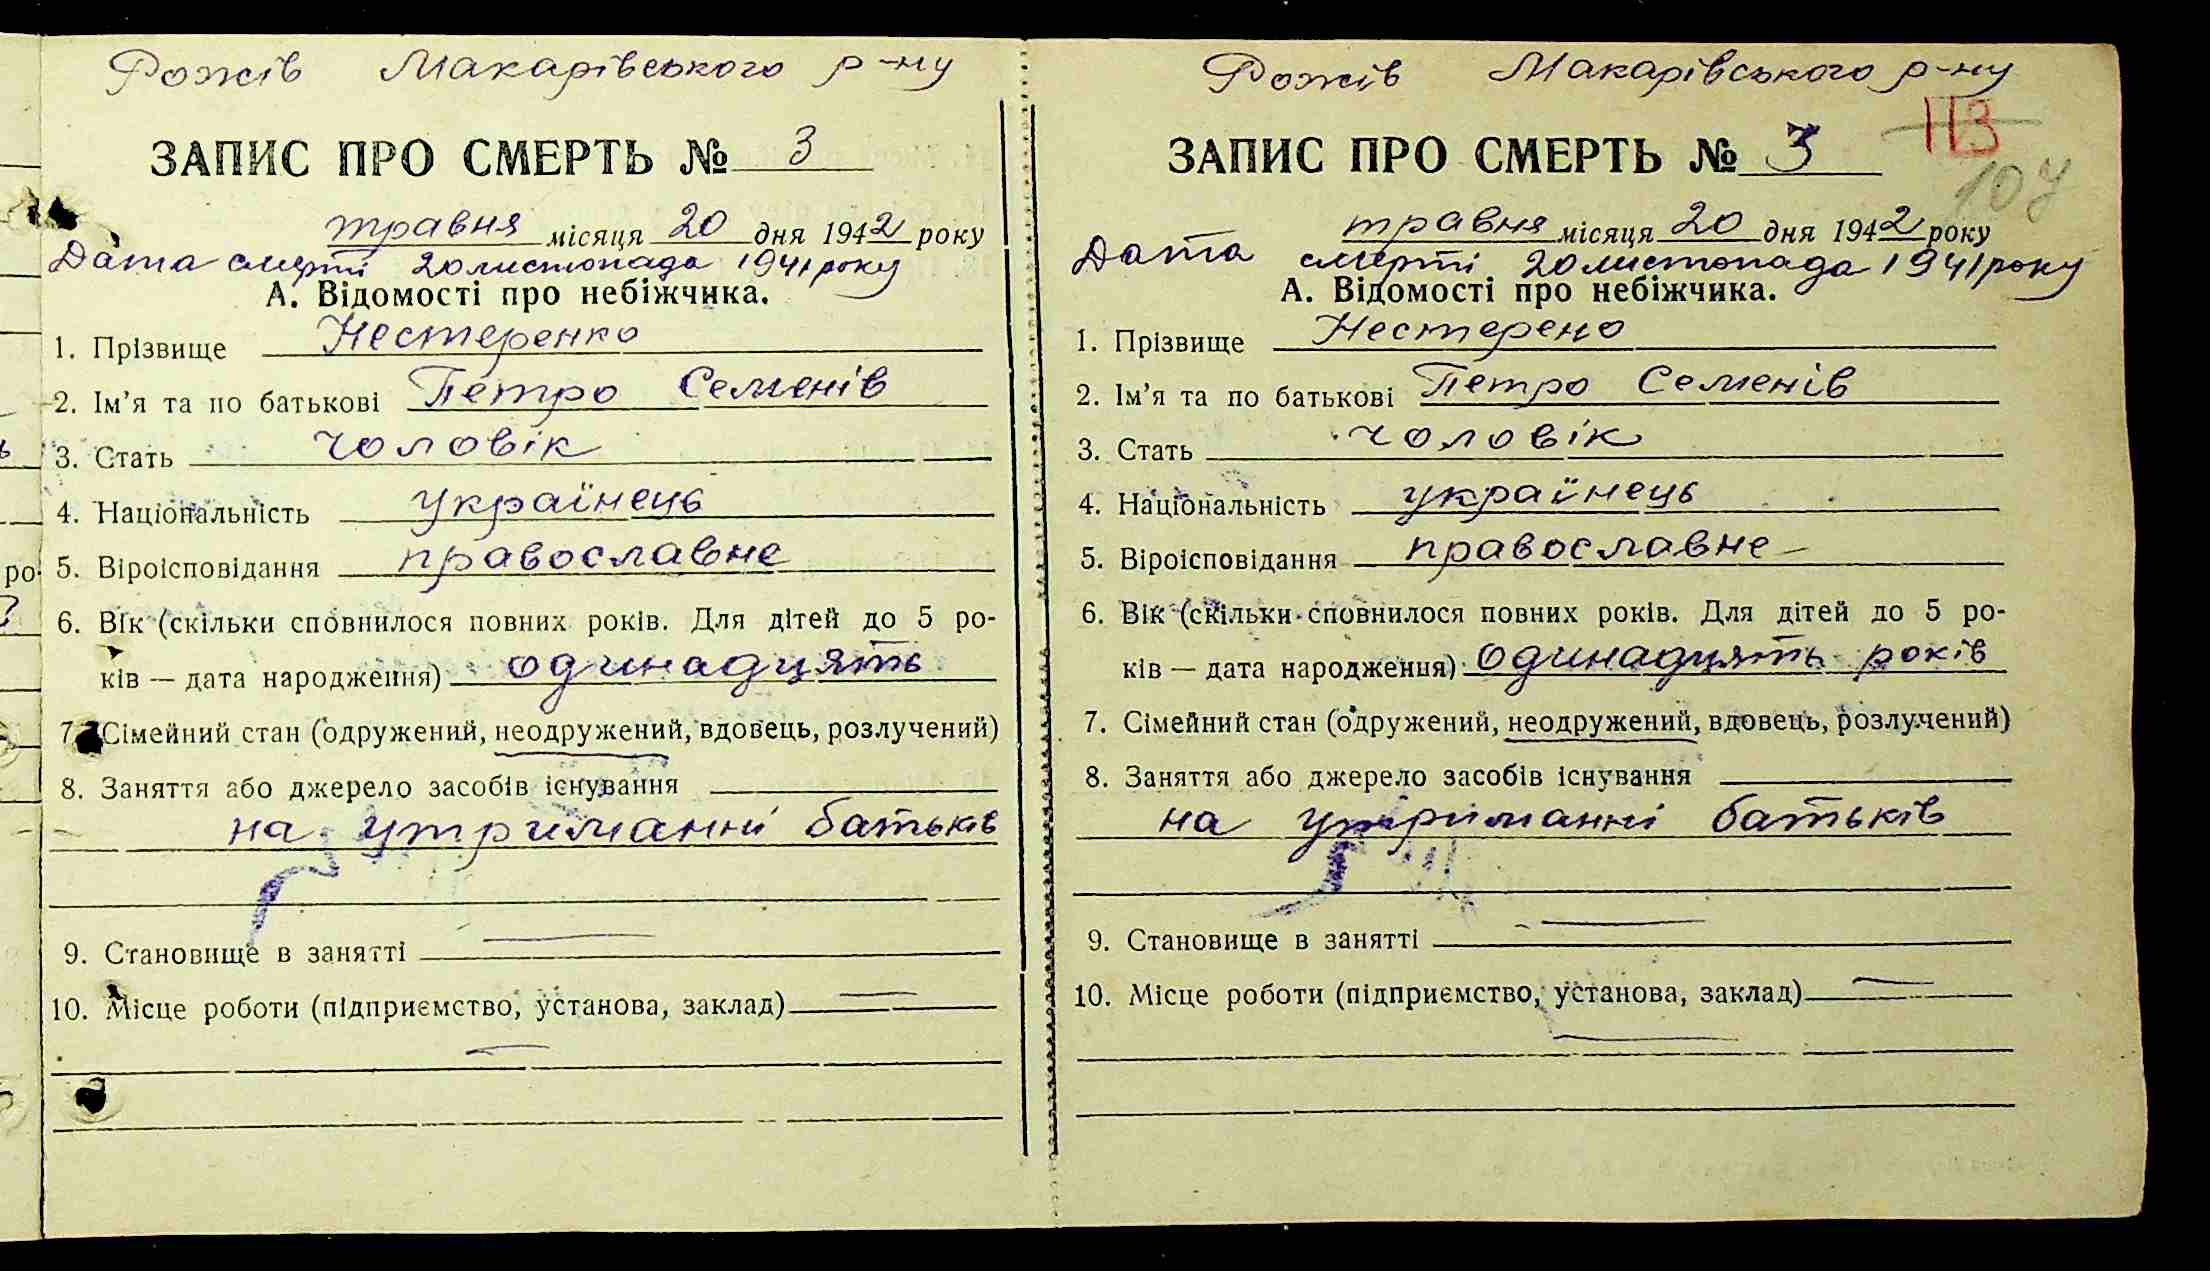 Рожів Макарівського р-ну
ЗАПИС ПРО СМЕРТЬ № 3
травня місяця 20 дня 1942 року
Дата смерті 20 листопада 1941 року
А. Відомості про небіжчика.
1. Прізвище Нестеренко
2. Ім'я та по батькові Петро Семенів
3. Стать чоловік
4. Національність українець
5. Віроісповідання православне
6. Вік (скільки сповнилося повних років. Для дітей до 5 ро-
ків — дата народження) одинадцять
7. Сімейний стан (одружений, неодружений, вдовець, розлучений)
8. Заняття або джерело засобів існування
на утриманні батьків
9. Становище в занятті —
10. Місце роботи (підприємство, установа, заклад) —
—
Рожів Макарівського р-ну
113
ЗАПИС ПРО СМЕРТЬ № 3
107
травня місяця 20 дня 1942 року
Дата смерті 20 листопада 1941 року
А. Відомості про небіжчика.
1. Прізвище Нестерено
2. Ім'я та по батькові Петро Семенів
3. Стать чоловік
4. Національність українець
5. Віроісповідання православне
6. Вік (скільки сповнилося повних років. Для дітей до 5 ро-
ків — дата народження) одинадцять років
7. Сімейний стан (одружений, неодружений, вдовець, розлучений)
8. Заняття або джерело засобів існування
на утриманні батьків
9. Становище в занятті —
10. Місце роботи (підприємство, установа, заклад) —
—